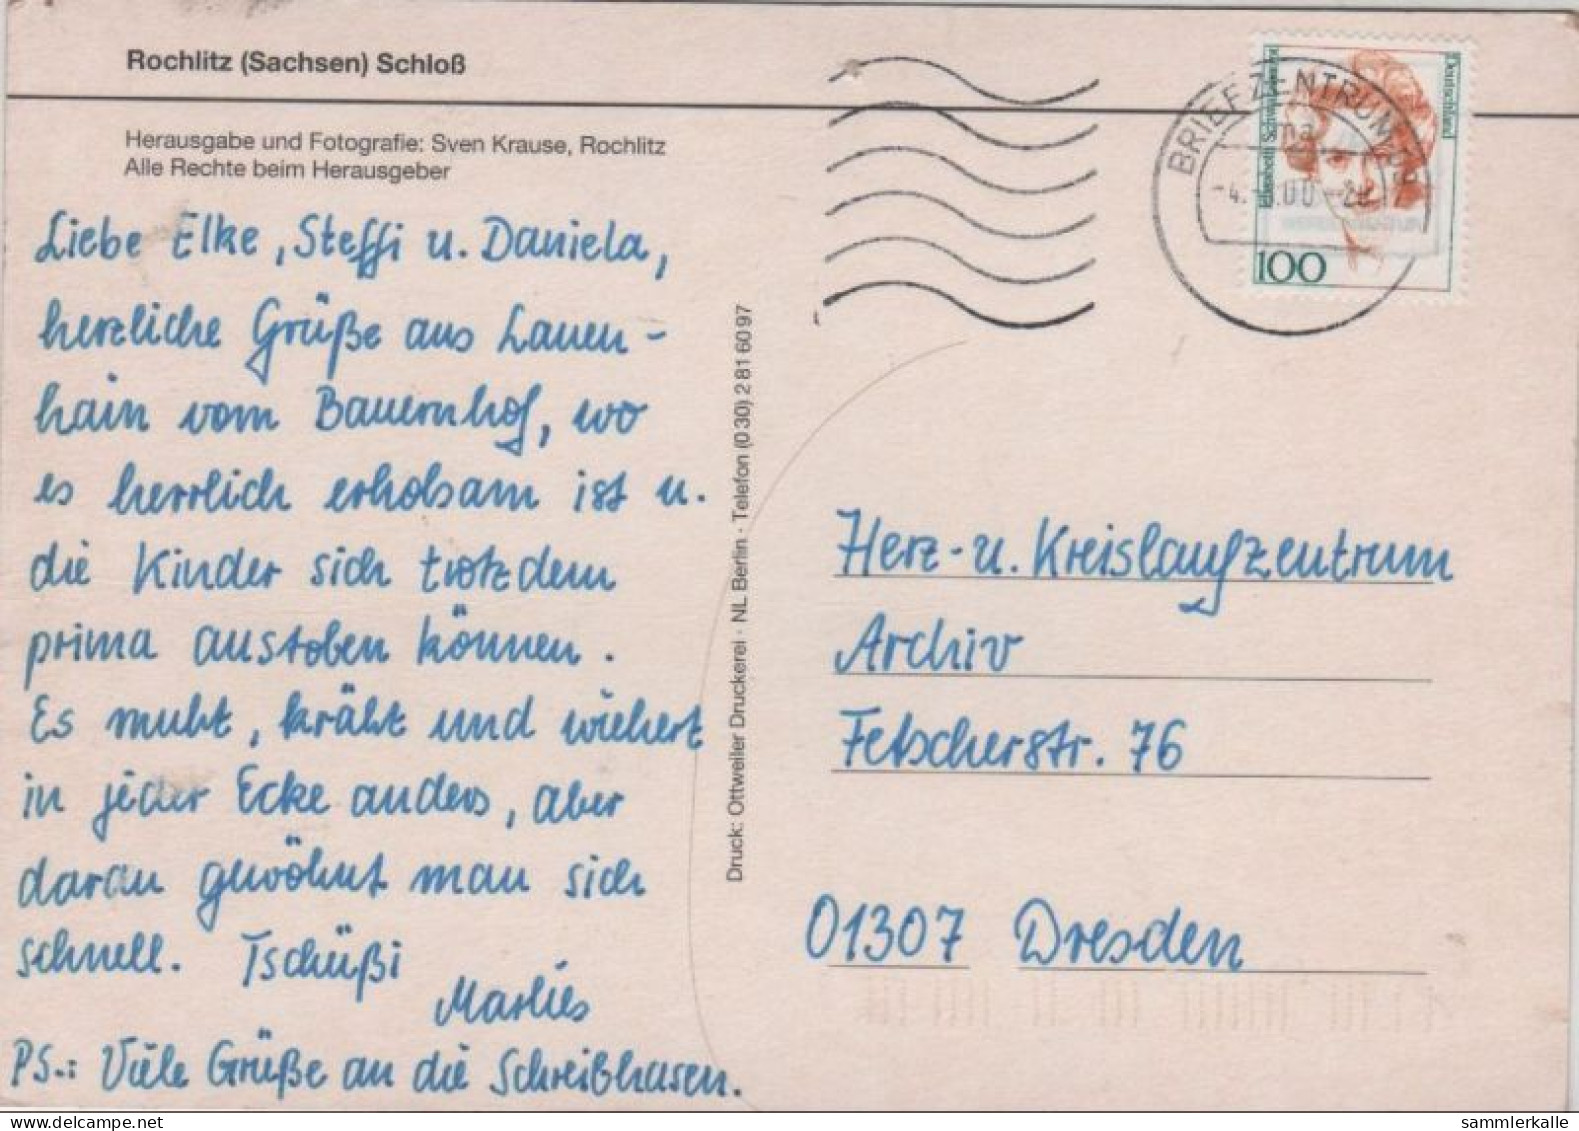 Rochlitz (Sachsen) Schloß
Herausgabe und Fotografie: Sven Krause, Rochlitz
Alle Rechte beim Herausgeber
Liebe Elke, Steffi u. Daniela,
herzliche Grüße aus Lauen-
hain vom Bauernhof, wo
es herrlich erholsam ist u.
die Kinder sich trotzdem
prima austoben können.
Es muht, kräht und wiehert
in jeder Ecke anders, aber
daran gewöhnt man sich
schnell. Tschüßi
Marlies
PS.: Viele Grüße an die Schreibhasen.
Druck: Ottweiler Druckerei · NL Berlin · Telefon (0 30) 2 81 60 97
BRIEFZENTRUM
Deutschland
Elisabeth Schwarzhaupt
100
Herz- u. Kreislaufzentrum
Archiv
Fetscherstr. 76
01307 Dresden
www.delcampe.net
sammlerkalle